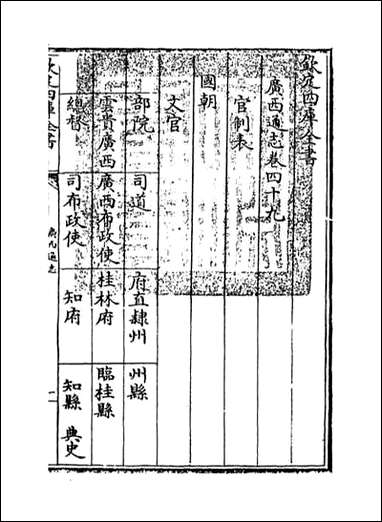 欽定四庫全書
廣西通志卷四十九
官制表
國朝
文官
部院 司道 府直隸州 州縣
雲貴廣西 廣西布政使 桂林府 臨桂縣
總督 司布政使 知府 知縣 典史
欽定四庫全書 廣西通志 一